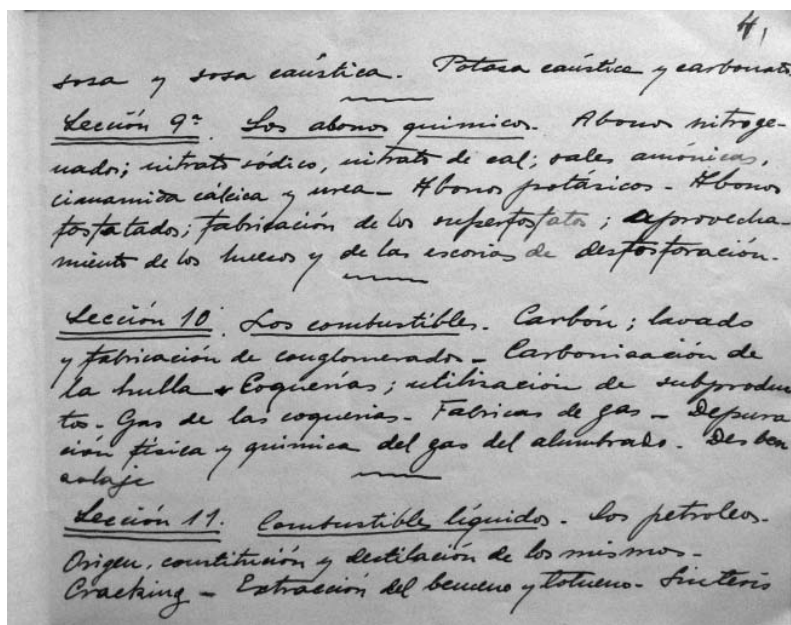 4,
sosa y sosa caústica. Potasa caústica y carbonato
Lección 9ª. Los abonos quimicos. Abonos nitroge-
nados; nitrato sódico, nitrato de cal; sales amónicas,
cianamida cálcica y urea - Abonos potásicos - Abonos
fosfatados; fabricación de los superfosfatos; aprovecha-
miento de los huesos y de las escorias de desfosforación.
Lección 10. Los combustibles. Carbón; lavado
y fabricación de conglomerados - Carbonización de
la hulla - Coquerías; utilización de subproduc
tos - Gas de las coquerias - Fabricas de gas - Depura
ción física y quimica del gas del alumbrado. Desben
zolaje
Lección 11. Combustibles líquidos - Los petroleos.
Origen, constitución y destilación de los mismos -
Cracking - Extracción del benceno y tolueno - Sintesis